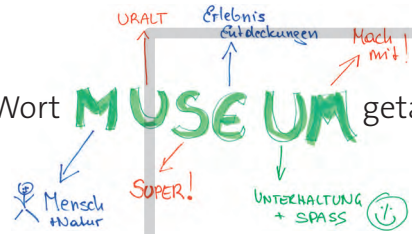 URALT
Erlebnis
Entdeckungen
Mach
mit!
Wort MUSEUM geta
Mensch
+Natur
SUPER!
UNTERHALTUNG
+ SPASS